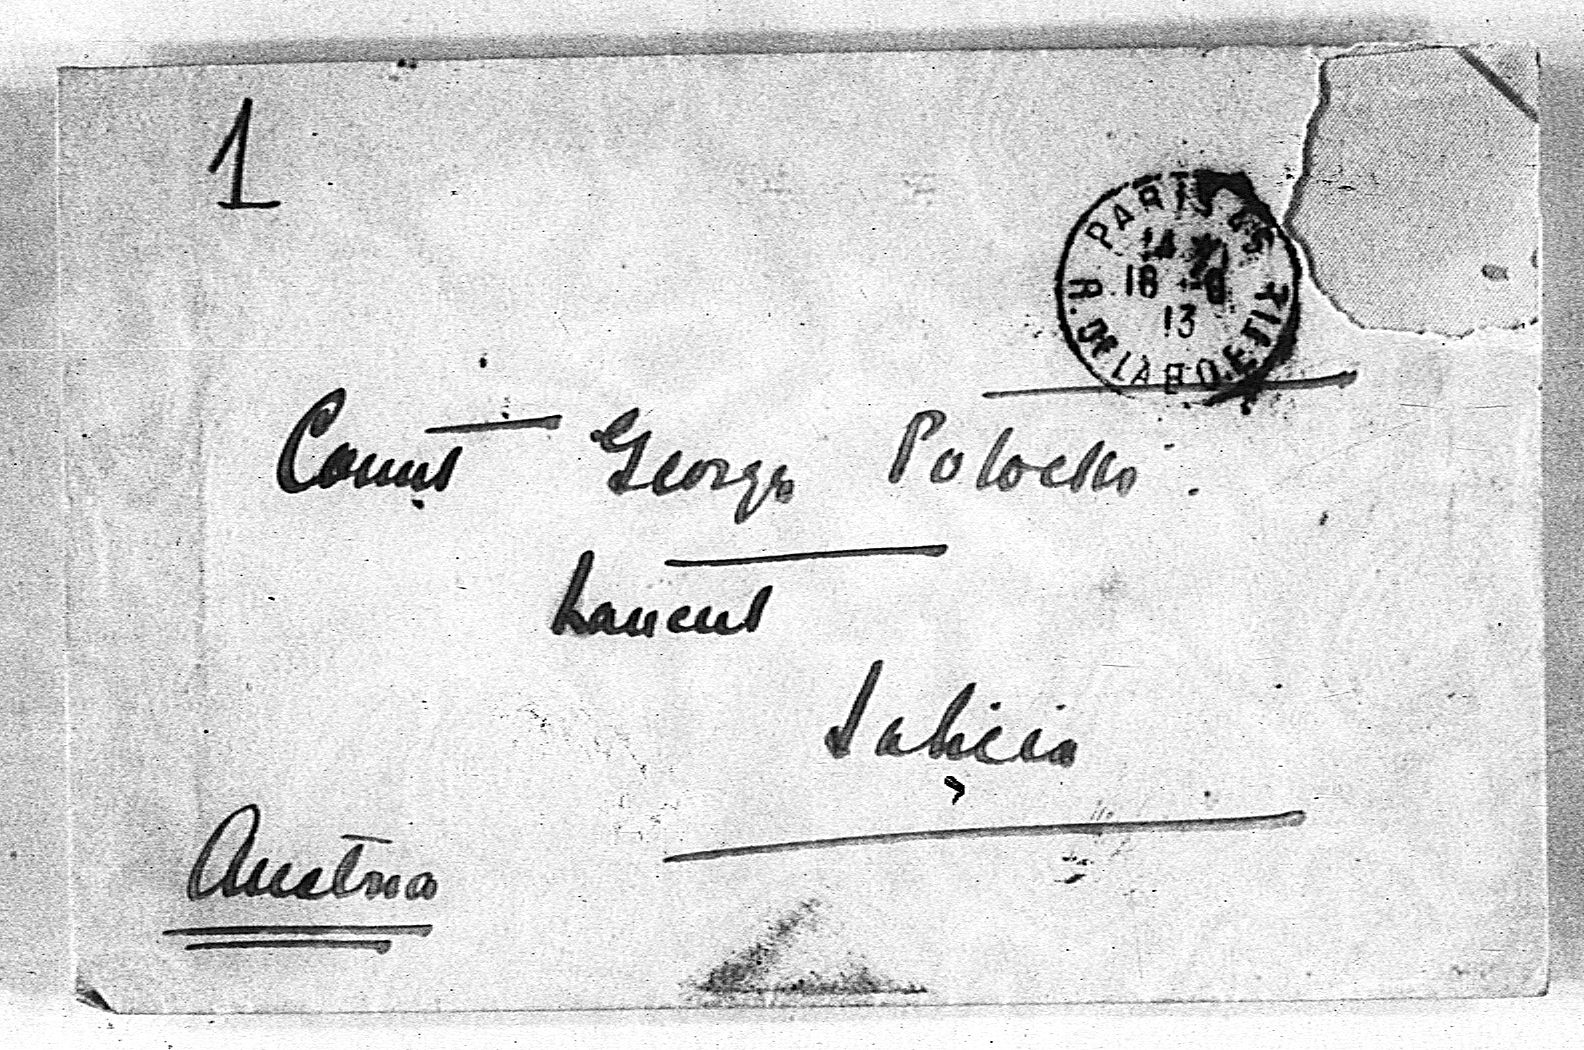 1
PARIS
18
13
R. De LA BOETIE
Count George Potocki.
Lancut
Galicia
Austria